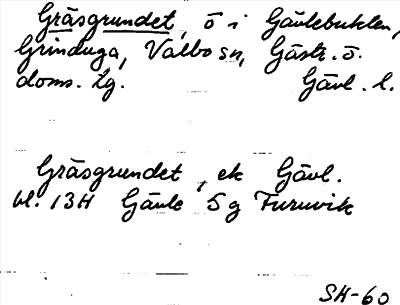 Gräsgrundet, ö i Gävlebukten,
Grinduga, Valbo sn, Gästr. ö.
doms. lg. Gävl. l.
Gräsgrundet, ek Gävl.
bl. 13H Gävle 5g Furuvik
SH-60